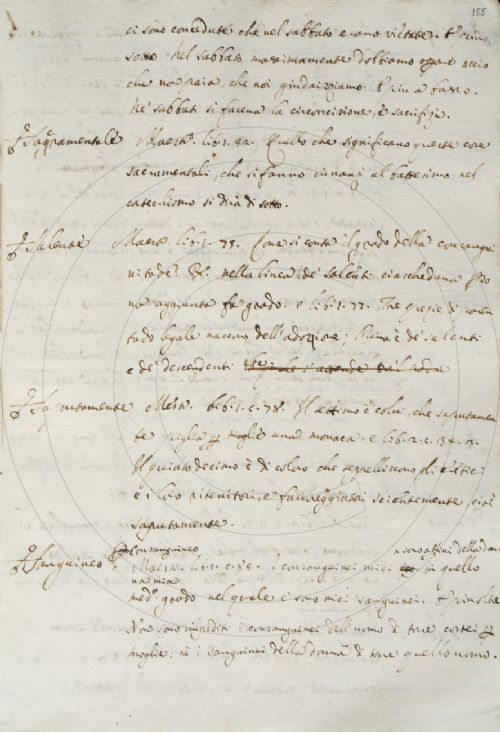 155
ci sono concedute che nel sabbato erano vietate. E più
sotto Nel sabbato massimamente dobbiamo orare acciò
che non paia, che noi giudaizziamo. E più a basso.
Ne' sabbati si faceva la circoncisione, e sacrifizi.
Sagramentale Maestr. lib. 1. 82. Quello che significano queste cose
sacramentali, che si fanno innanzi al battesimo nel
catechismo si dirà di sotto.
Salente Maestr. lib. 1. 75. Come si conta il grado della consangui
nitade. nella linea de' salenti ciascheduna perso
na aggiunta fa grado. e lib. 1. 77. Tre spezie di paren
tado legale nascono dell'adozione; Prima è de' salenti
e de' descendenti
Saputamente Maestr. lib. 1. c. 78. Il settimo è colui, che saputamen
te piglia per moglie una monaca. e lib. 2. c.
Il quinto decimo è di coloro che seppelliscono gli eretici
e i loro ritenitori, e favoreggiatori scientemente, cioè
saputamente.
Sanguineo consanguineo sono affini della don
Maestr. lib. 1. c. 76. I consanguinei miei in quello
na mia
med.o grado nel quale e' sono miei sanguinei. E più oltre
Non sono impediti i consanguinei dell'uomo di torre costei per
moglie; nè i sanguinei della donna di torre quello uomo.